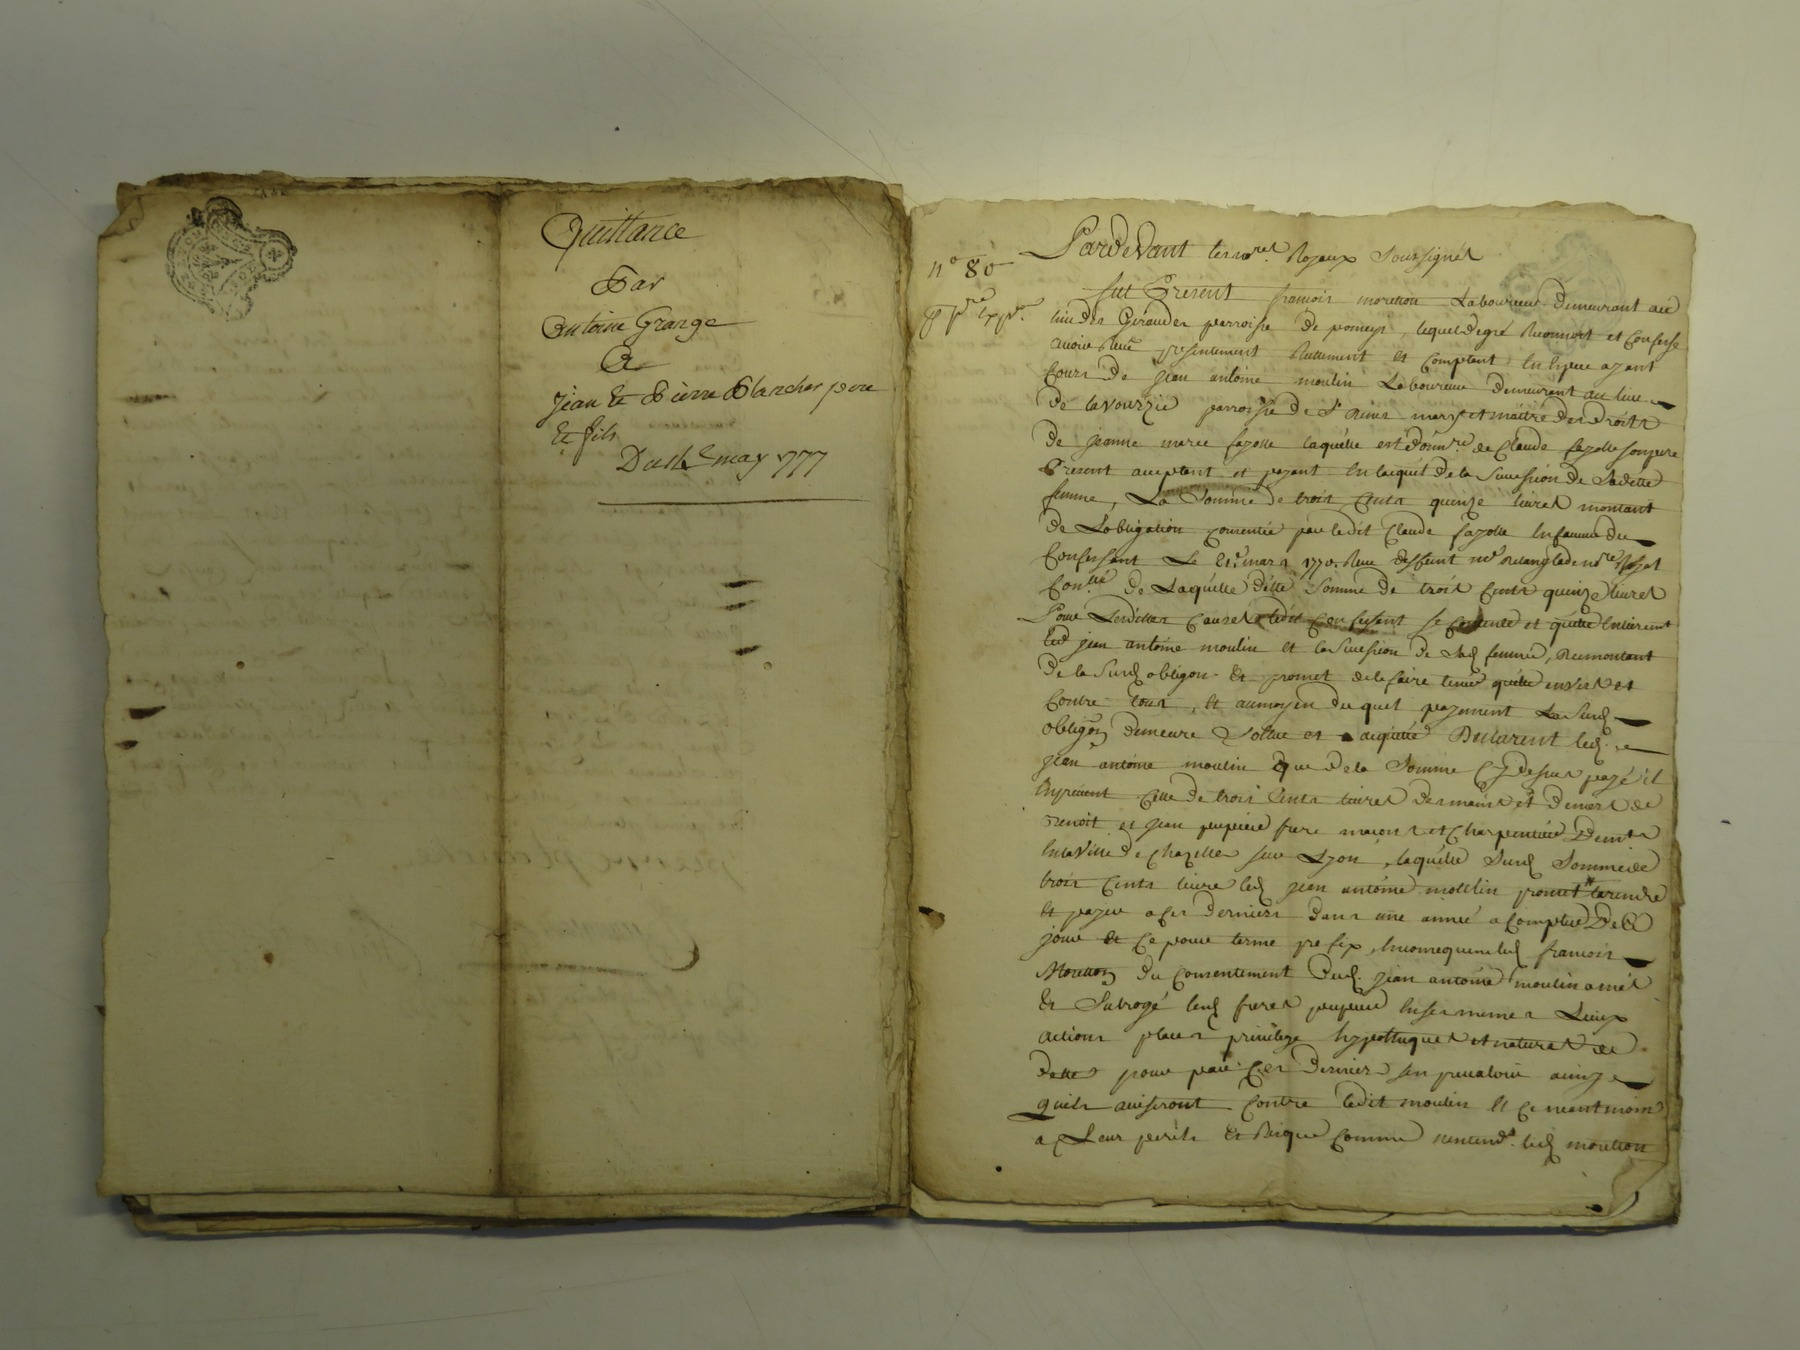 Quittance
Par
Antoine Grange
A
jean et Pierre Blanchet pere
et fils
Du 1er may 1777
n° 80
Pardevant les no.res Royaux Soussignés
fut Present francois moretton Laboureur demeurant au
lieu des Giraudes parroisse de pomeys, lequel de gré Reconnoit et Confesse
avoir Reçu presentement Reellement et Comptant En Espece ayant
Cours De jean antoine moulin Laboureur demeurant au lieu
De la vourzie parroisse de St mary et maitre des Droits
de jeanne marie fayolle laquelle est de Claude fayolle son pere
Present acceptant et payant En l'acquit De la Succession de Sadette
femme, La Somme de trois Cents quinze livres montant
de L'obligation consentie par ledit Claude fayolle En faveur du
Confessant Le 21e mars 1770. Reçue deffunt me no.re Royal
De Laquelle dette Somme de trois Cents quinze livres
Pour Lesdittes Causes ledit Confessant se Contente et quitte Entierement
led jean antoine moulin et la Succession de Sad femme, Du montant
de la Susd obligon. Et promet de le faire tenir quitte envers et
Contre tous, Et au moyen du quel payement La Susd
obligon demeure Sollue et acquitté Declarent led.
jean antoine moulin que De la Somme Cy dessus payé il
Celle de trois Cents livres des mains et deniers de
Benoit et jean frere macons et Charpentier Demts
En la Ville de Chazelles sur Lyon, laquelle Susd Somme de
trois Cents livre led jean antoine moulin promet rendre
et payer a ces Derniers dans une année a Compter De Ce
jour et Ce pour terme prefix, En consequence led francois
Moretton du Consentement Dud. jean antoine moulin a mis
Et Subrogé lesd freres En ses memes Lieux
actions places privilege hypotheques et natures de
dette pour par Ces Derniers s'en prevaloir ainsy
quils aviseront Contre ledit moulin Et Ce neantmoins
a Leur perils Et Risque Comme n'entend. led moretton